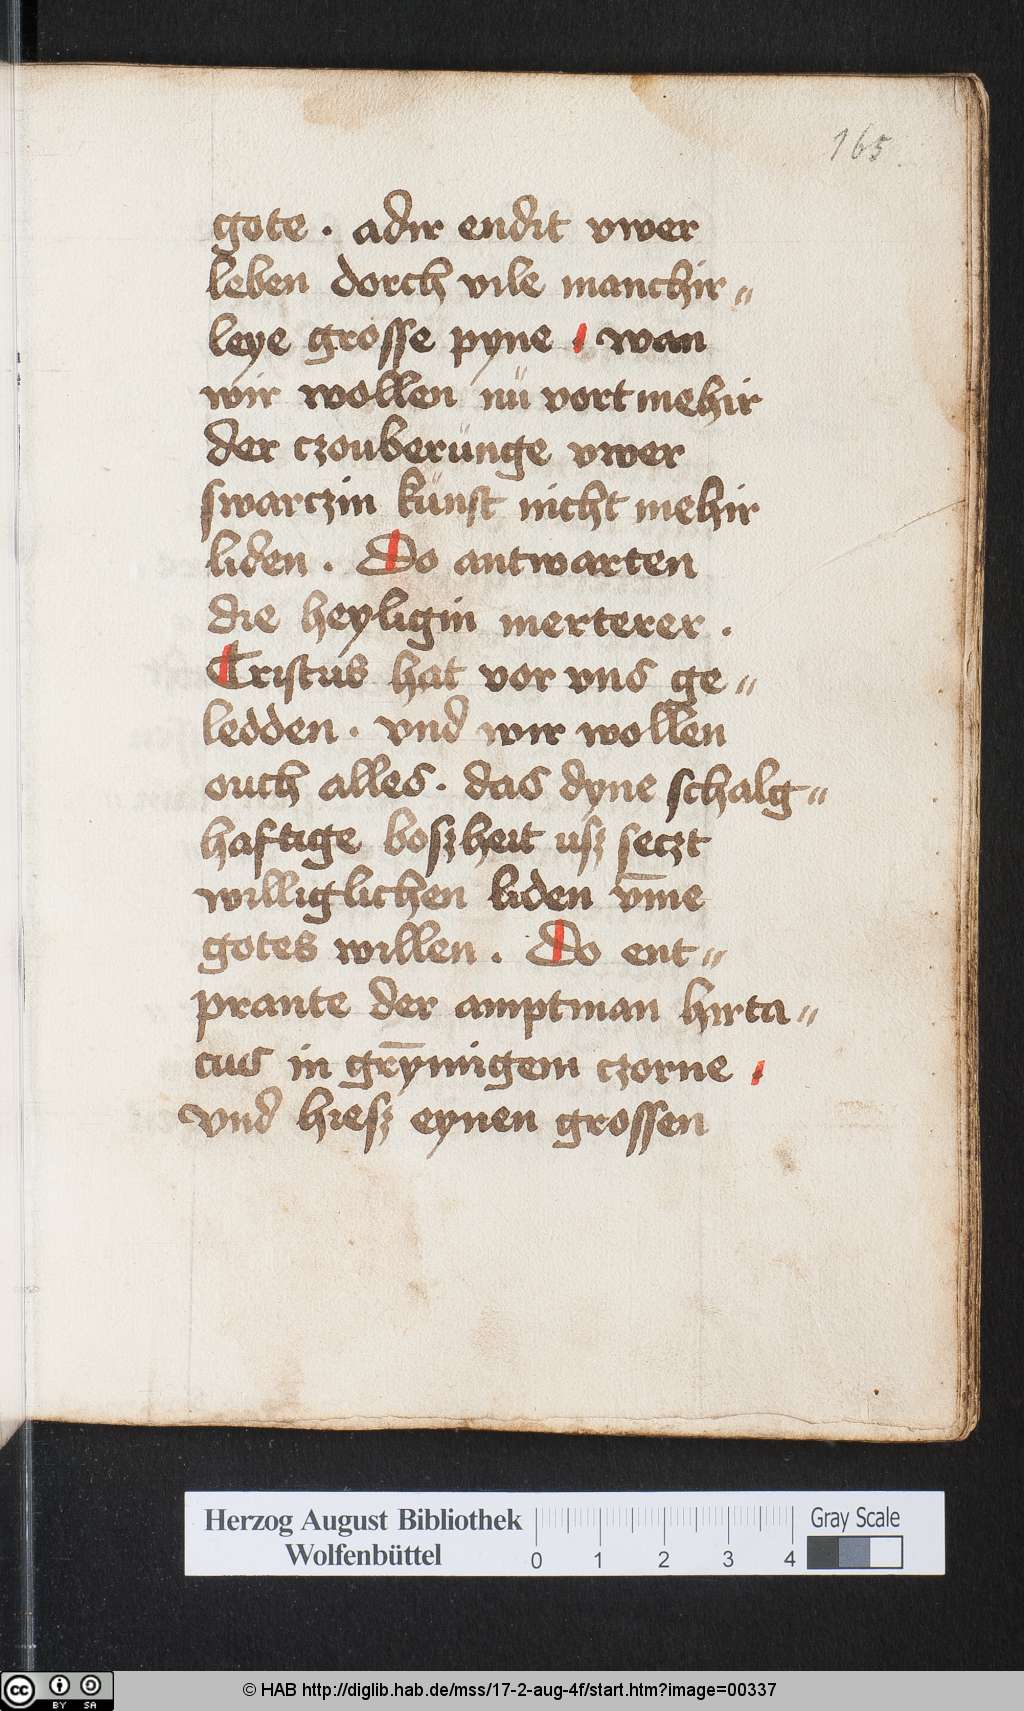 165
gote . adir endit vwer
leben dorch vile manchir„
leye grosse pyne wan
wir wollen nü vort mehir
der czouberünge vwer
swarczin künst nicht mehir
liden . Do antwarten
die heyligin merterer .
Cristus hat vor vns ge„
ledden . vnd wir wollen
ouch alles . das dyne schalg„
haftige boszheit usz seczt
williglichen liden vm̄e
gotes willen . Do ent„
prante der amptman hirta„
cus in gry̅migem czorne
vnd hiesz eynen grossen
Herzog August Bibliothek
Wolfenbüttel
0 1 2 3 4
Gray Scale
cc BY SA
© HAB http://diglib.hab.de/mss/17-2-aug-4f/start.htm?image=00337